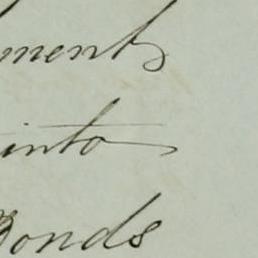 ments
into
Bonds